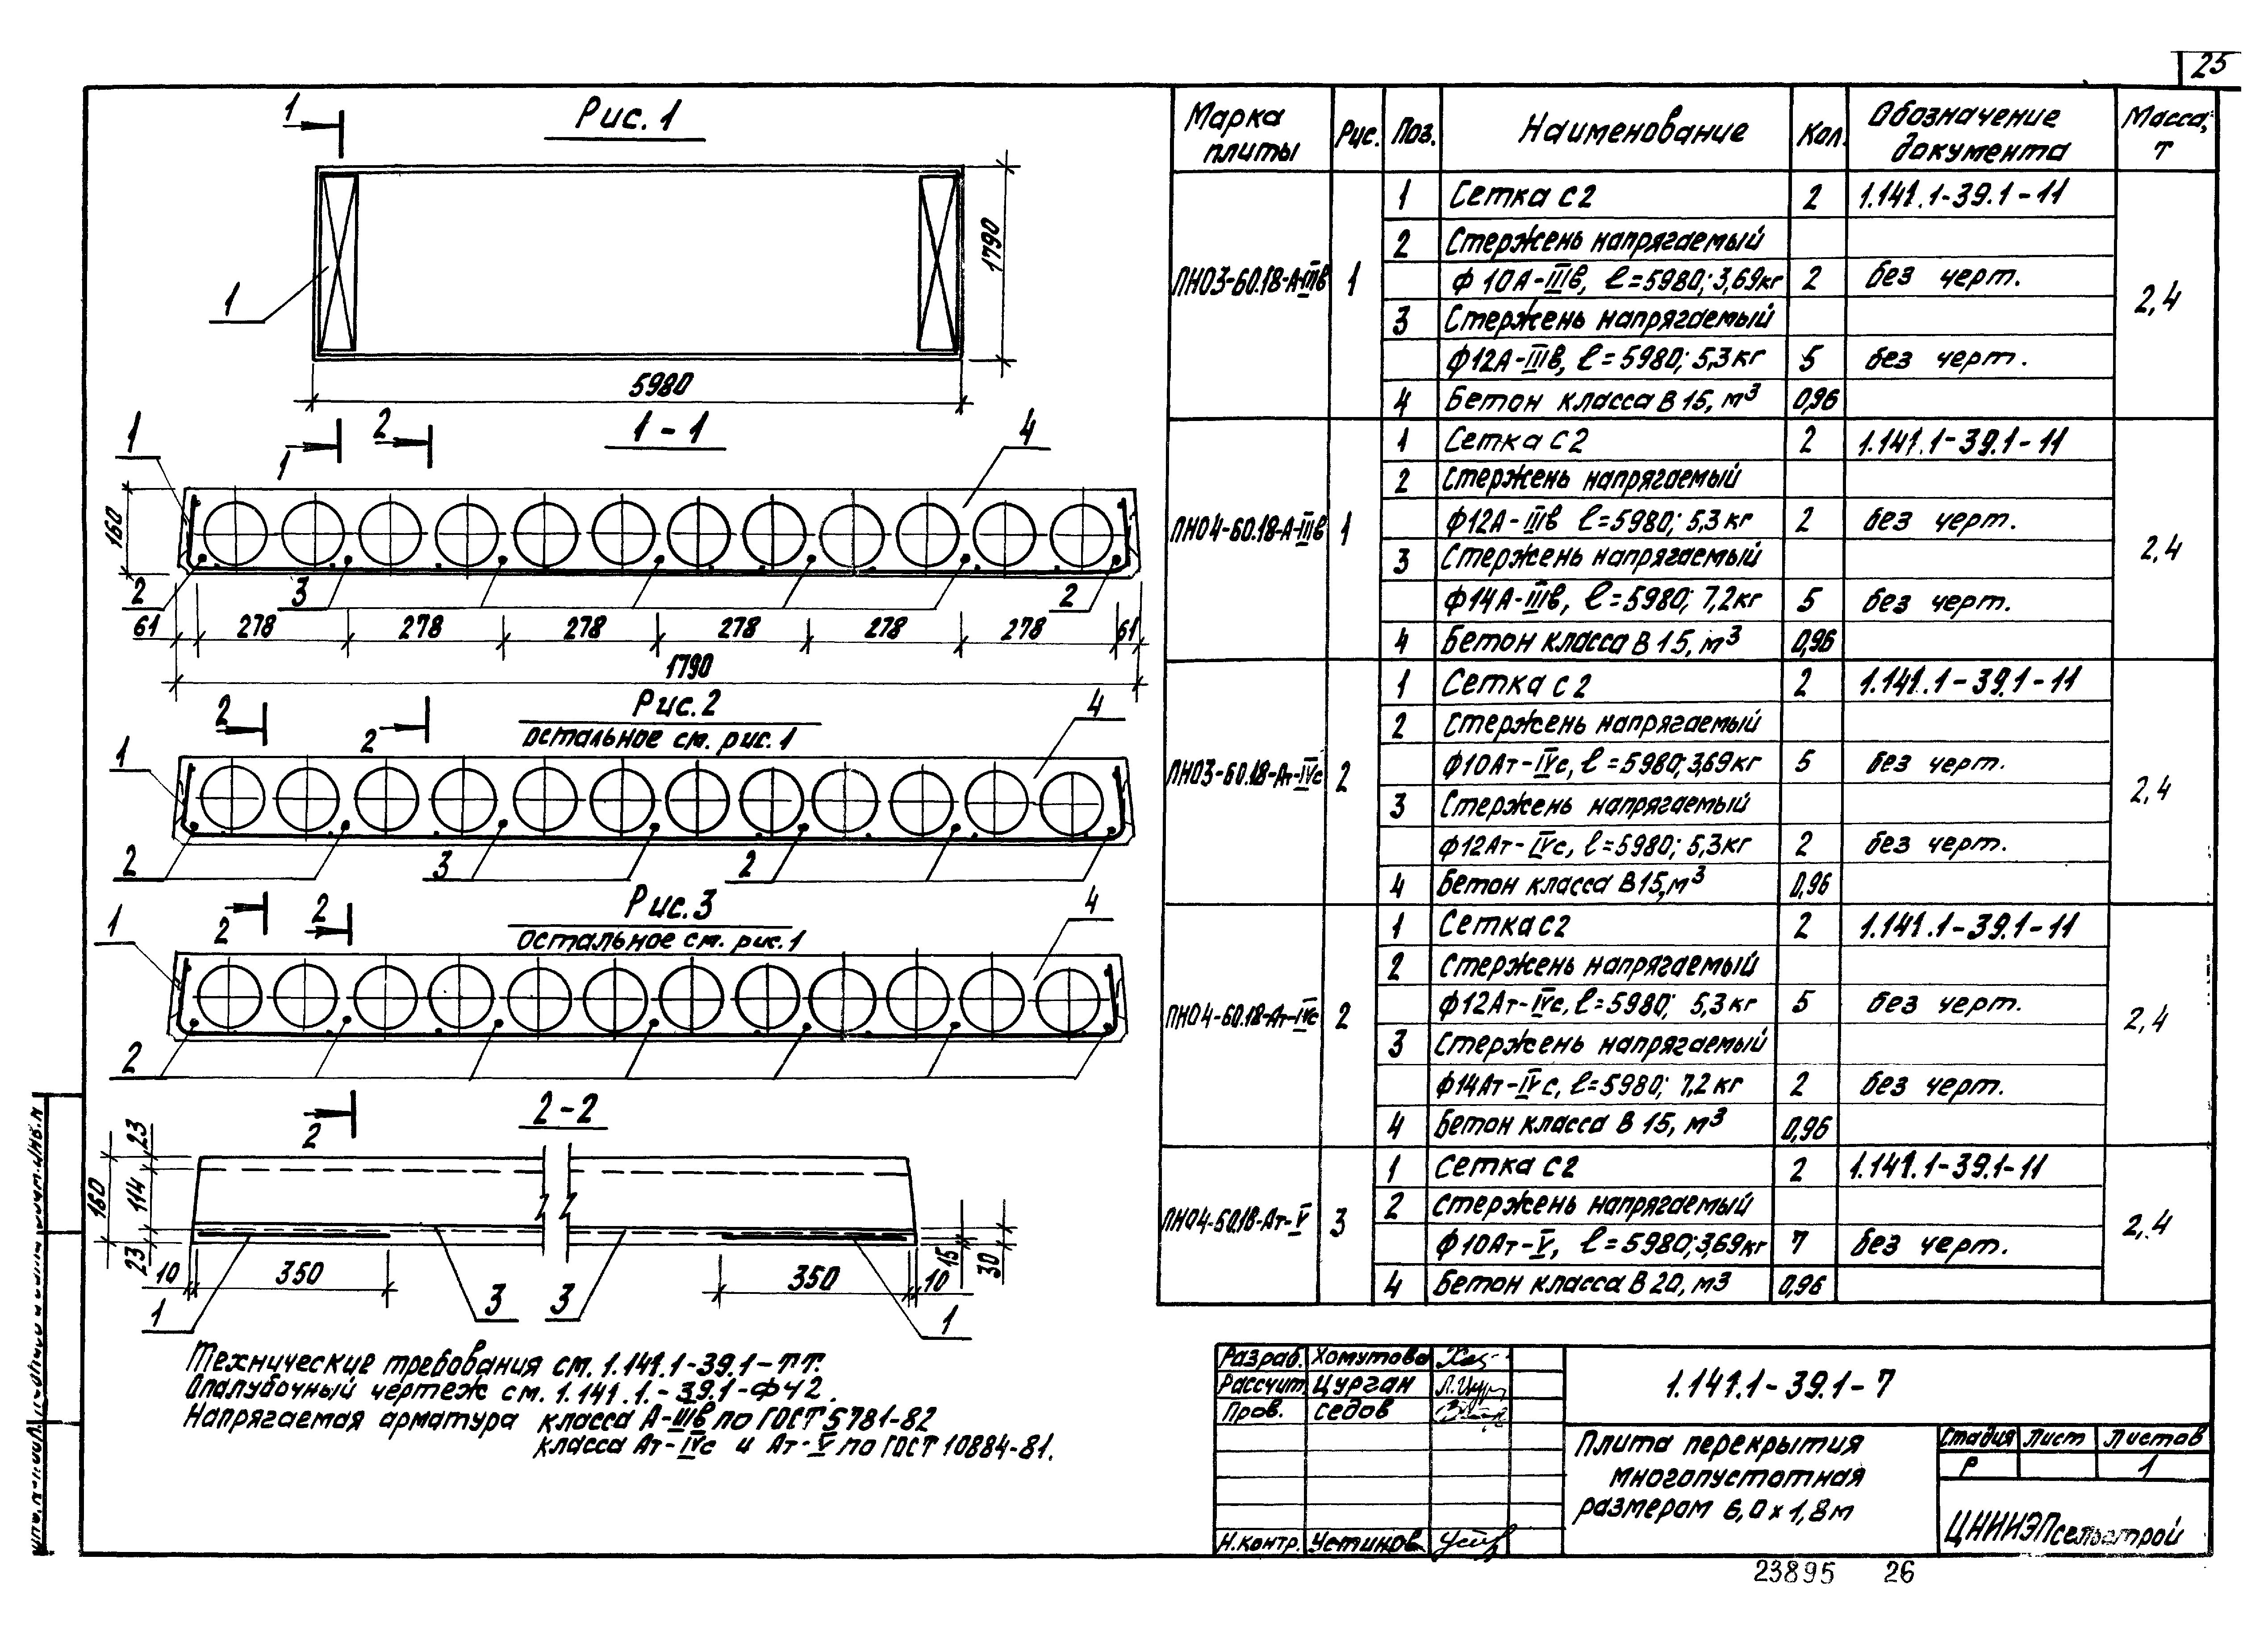 25
Рис. 1
1
1790
1
5980
1
1-1
2
1
4
160
2
3
2
61 278 278 278 278 278 278 61
1790
Рис. 2
остальное см. рис. 1
2
2
4
1
2
3
2
Рис. 3
остальное см. рис. 1
2
2
4
1
2
2
2-2
160
23
114
23
10
350
350
10
15
30
1
3
3
1
Технические требования см. 1.141.1-39.1-ТТ.
Опалубочный чертеж см. 1.141.1.-39.1-ФЧ2.
Напрягаемая арматура класса А-IIIв по ГОСТ 5781-82
класса Ат-IVс и Ат-V по ГОСТ 10884-81.
Марка плиты Рис. Поз. Наименование Кол. Обозначение документа Масса, т
ПНО3-60.18-А-IIIв 1 2,4
1 Сетка С2 2 1.141.1-39.1-11
2 Стержень напрягаемый
ф 10А-IIIв, ℓ=5980; 3,69кг 2 без черт.
3 Стержень напрягаемый
ф12А-IIIв, ℓ=5980; 5,3кг 5 без черт.
4 Бетон класса В15, м³ 0,96
ПНО4-60.18-А-IIIв 1 2,4
1 Сетка С2 2 1.141.1-39.1-11
2 Стержень напрягаемый
ф12А-IIIв ℓ=5980; 5,3кг 2 без черт.
3 Стержень напрягаемый
ф14А-IIIв, ℓ=5980; 7,2кг 5 без черт.
4 Бетон класса В15, м³ 0,96
ПНО3-60.18-Ат-IVс 2 2,4
1 Сетка С2 2 1.141.1-39.1-11
2 Стержень напрягаемый
ф10Ат-IVс, ℓ=5980; 3,69кг 5 без черт.
3 Стержень напрягаемый
ф12Ат-IVс, ℓ=5980; 5,3кг 2 без черт.
4 Бетон класса В15, м³ 0,96
ПНО4-60.18-Ат-IVс 2 2,4
1 Сетка С2 2 1.141.1-39.1-11
2 Стержень напрягаемый
ф12Ат-IVс, ℓ=5980; 5,3кг 5 без черт.
3 Стержень напрягаемый
ф14Ат-IVс, ℓ=5980; 7,2кг 2 без черт.
4 Бетон класса В15, м³ 0,96
ПНО4-60.18-Ат-V 3 2,4
1 Сетка С2 2 1.141.1-39.1-11
2 Стержень напрягаемый
ф10Ат-V, ℓ=5980; 3,69кг 7 без черт.
4 Бетон класса В20, м3 0,96
Разраб. Хомутова
Рассчит. Цурган
Пров. Седов
Н.контр. Устинов
1.141.1-39.1-7
Плита перекрытия
многопустотная
размером 6,0х1,8м
Стадия Лист Листов
Р 1
ЦНИИЭПсельстрой
23895 26